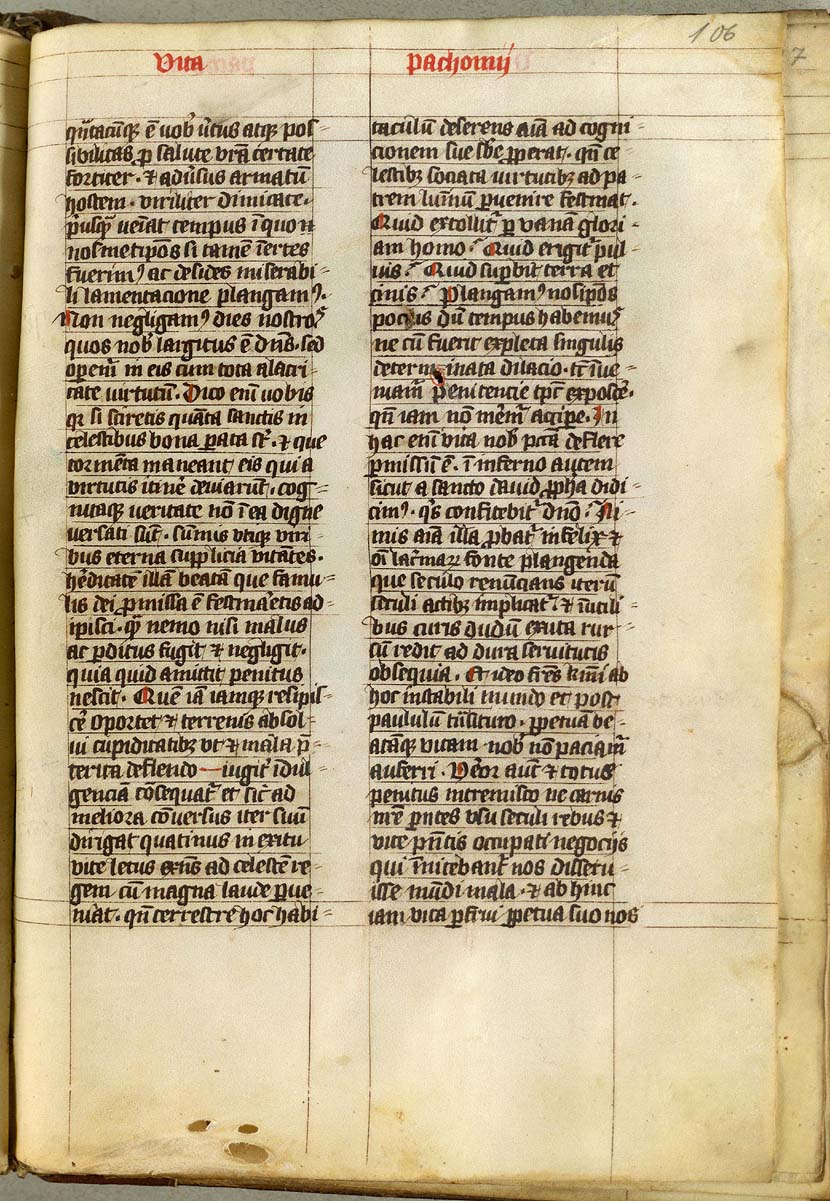 Vita
pachomij
106
7
qu̅tacu̅q̅ e̅ uob̅ u̅tus atq̅ pos-
sibilitas p̱ salute vr̅a certate
fortiter · ⁊ adu̅sus armatu̅
hostem · viriliter dimicate ·
p̅usqu̅ ueiat tempus i̅ quo n
nosmetip̅os si tame̅ i̅ertes
fuerimꝰ ac desides miserabi-
li lamentacione plangamꝰ.
Non negligamꝰ dies nostroꝝ
quos nob̅ largitus e̅ dn̅s · sed
op̱em̅ in eis cum tota alacri-
tate virtutu̅ · Dico eni̅ uobis
qꝛ si sciretis qua̅ta sanctis in
celestibus bona p̱ata st̅ · ⁊ que
torme̅ta maneant eis qui a
virtutis itin̅e deuiaru̅t · cog-
nitaq̅ veritate no̅ i̅ ea digne
versati su̅t · su̅mis vtiq̅ viri-
bus eterna supplicia vita̅tes ·
h̅editate̅ illa̅ beata̅ que famu-
lis dei ꝓmissa e̅ festina̅etis ad-
ipisci · qu̅ nemo nisi malus
ac p̱ditus fugit ⁊ negligit ·
quia quid amittit penitus
nescit · Que̅ ia̅ iamq̅ resipis-
ce̅ oportet ⁊ terrenis absol-
ui cupiditatibꝫ vt ⁊ mala p̅-
terita deflendo iugit̅ i̅dul-
gencia̅ co̅sequat̅ et sic̅ ad
meliora co̅uersus iter suu̅
dirigat quatinus in exitu
vite letus exn̅s ad celeste̅ re-
gem cu̅ magna laude p̱ue-
niat · qn̅ terrestre hoc habi-
taculu̅ deserens ai̅a ad cogni-
cionem sue sb̅e ꝓperat · qn̅ ce-
lestibꝫ sociata virtutibꝫ ad pa-
trem lumi̅u̅ p̱uenire festinat ·
Quid extollit̅ p̱ vana̅ glori-
am homo · Quid erigit̅ pul-
uis · Quid sup̱bit terra et
cinis · Plangamꝰ nosip̅os
pocius du̅ tempus habemꝰ
ne cu̅ fuerit expleta singulis
determinata dilacio · tc̅ i̅ue-
niam̅ penitencie tp̅c exposce̅ ·
qn̅ iam no̅ m̅em̅ accipe̅ · In
hac eni̅ vita nob̅ pc̅ca deflere
p̱missu̅ e̅ · i̅ inferno autem
sicut a sancto dauid ꝓph̅a didi-
cimꝰ · qis confitebit̅ dn̅o · Ni-
mis ai̅a illa ꝓbat̅ infelix ⁊
oi̅ lac̅maꝝ fonte plangenda
que seculo renu̅cians iteru̅
seculi actibꝫ implicat̅ ⁊ i̅utili-
bus curis dudu̅ exuta rur-
su̅ redit ad dura seruitutis
obsequia · Et ideo fr̅es k̅mi ab
hoc instabili mundo et post
paululu̅ tn̅situro · p̱petua̅ be-
ata̅q̅ vitam nob̅ no̅ paciam̅
auferri · Ve̅or aut̅ ⁊ totus
penitus intremisco ne carnis
n̅re p̱e̅ntes vsu seculi rebus ⁊
vite pn̅tis occupati negocijs
qui i̅nitebant̅ nos disseru-
isse mu̅di mala · ⁊ ab hinc
iam vita p̱frui p̱petua suo nos